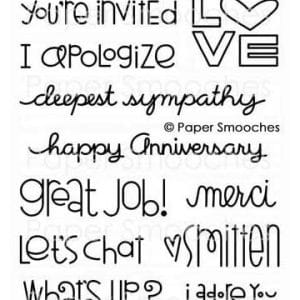 you're invited
LOVE
I apologize
deepest sympathy
© Paper Smooches
happy Anniversary
great job!
merci
Let's chat
smitten
What's up?
i adore you